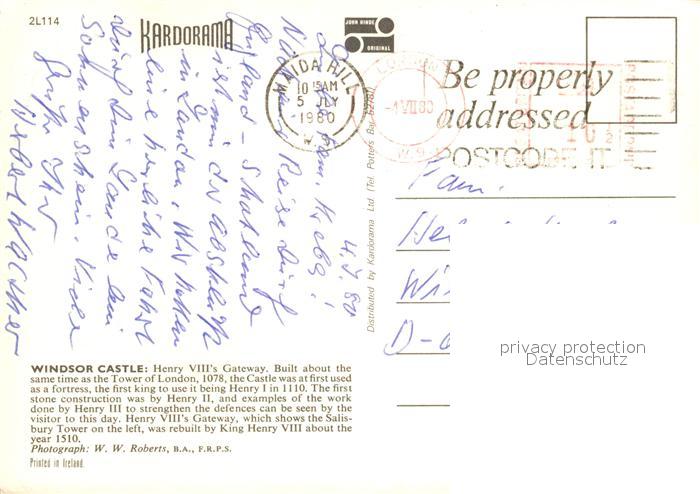 2L114
KARDORAMA
JOHN HINDE
ORIGINAL
MAIDA HILL
10 15AM
5 JLY
1980
W
LONDON
-4 VII 80
W.9
Be properly
addressed
POSTCODE IT
4.7.80
Krebs!
Reise durch
England - Schottland
ist nun der Abschluß
in London. Wir hatten
eine herrliche Fahrt
durch Lande bei
Sonnenschein. Viele
Grüße Ihr
Fam.
D-
Distributed by Kardorama Ltd (Tel. Potters Bar 52781)
WINDSOR CASTLE: Henry VIII's Gateway. Built about the
same time as the Tower of London, 1078, the Castle was at first used
as a fortress, the first king to use it being Henry I in 1110. The first
stone construction was by Henry II, and examples of the work
done by Henry III to strengthen the defences can be seen by the
visitor to this day. Henry VIII's Gateway, which shows the Salis-
bury Tower on the left, was rebuilt by King Henry VIII about the
year 1510.
Photograph: W. W. Roberts, B.A., F.R.P.S.
Printed in Ireland.
privacy protection
Datenschutz